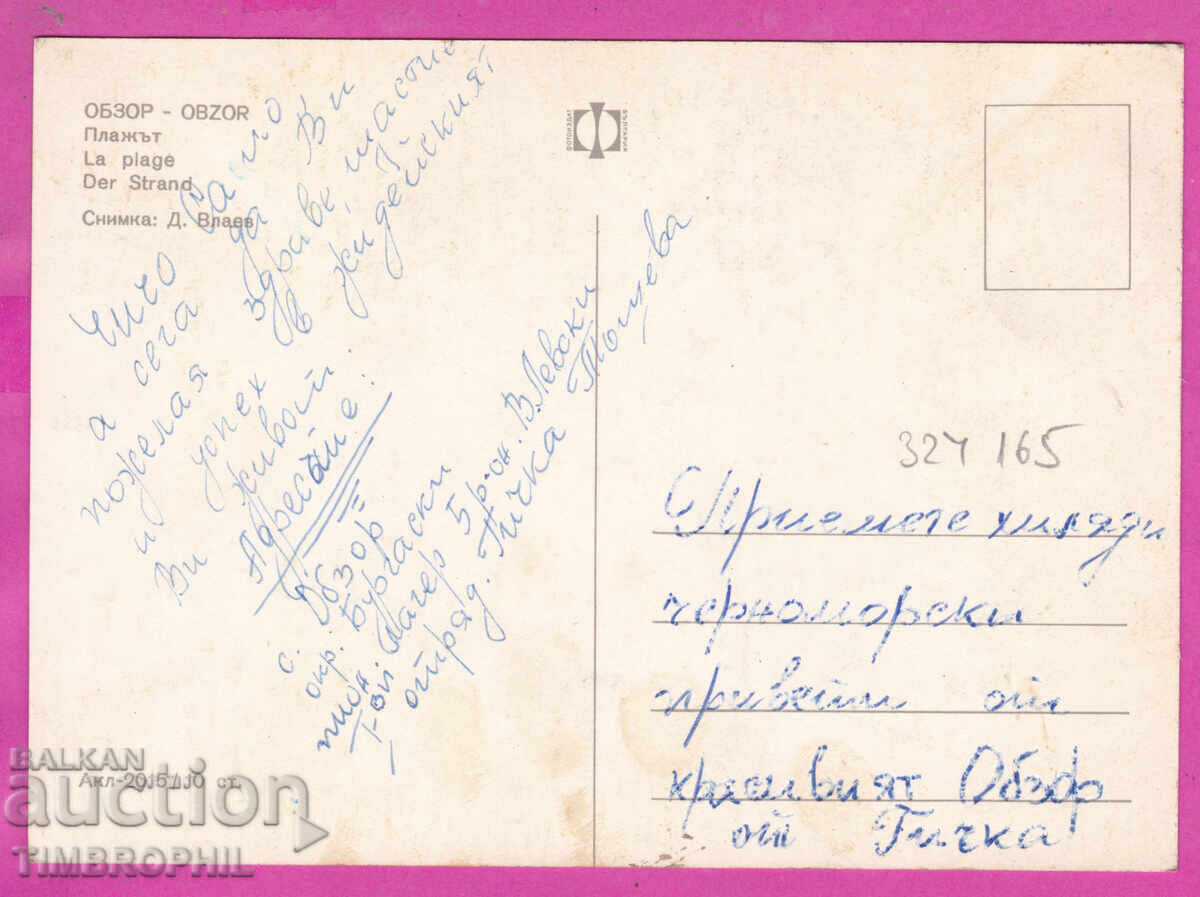 ОБЗОР - OBZOR
Плажът
La plage
Der Strand
Снимка: Д. Влаев
ФОТОИЗДАТ
БЪЛГАРИЯ
Чичо Сашо
а сега да Ви
пожелая здраве, щастие
и успех в
Ви живот!
Адресът е:
с. Обзор
окр. Бургаски
пион. лагер Бр-он. В. Левски
I-ви отряд. Гичка Тотева
324 165
Приемете хиляди
черноморски
привети от
красивият Обзор
от Гичка
Акл-2015/10 ст.
BALKAN
auction
TIMBROPHIL